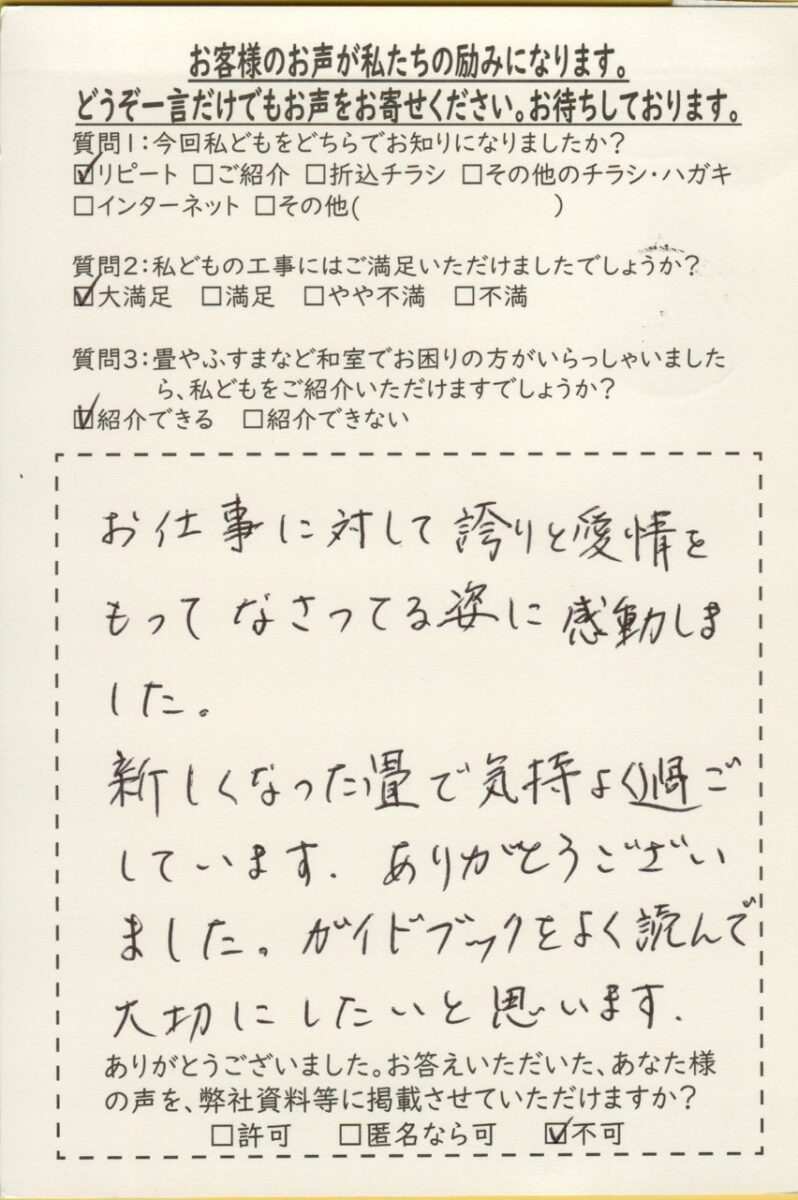 お客様のお声が私たちの励みになります。
どうぞ一言だけでもお声をお寄せください。お待ちしております。
質問1:今回私どもをどちらでお知りになりましたか?
☑リピート □ご紹介 □折込チラシ □その他のチラシ・ハガキ
□インターネット □その他( )
質問2:私どもの工事にはご満足いただけましたでしょうか?
☑大満足 □満足 □やや不満 □不満
質問3:畳やふすまなど和室でお困りの方がいらっしゃいました
ら、私どもをご紹介いただけますでしょうか?
☑紹介できる □紹介できない
お仕事に対して誇りと愛情を
もってなさってる姿に感動しま
した。
新しくなった畳で気持よく過ご
しています。ありがとうござい
ました。ガイドブックをよく読んで
大切にしたいと思います。
ありがとうございました。お答えいただいた、あなた様
の声を、弊社資料等に掲載させていただけますか?
□許可 □匿名なら可 ☑不可